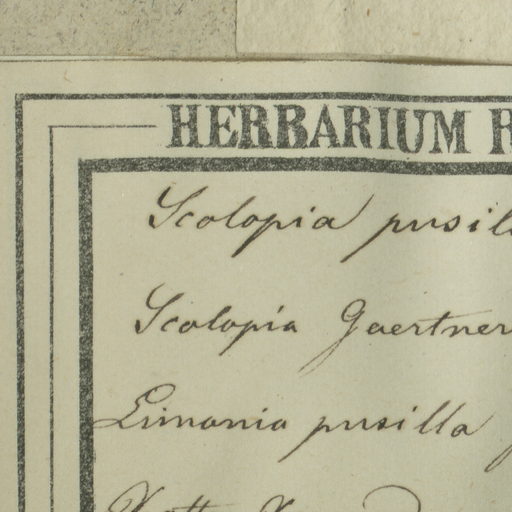 HERBARIUM R
Scolopia pusill
Scolopia Gaertner
Limonia pusilla